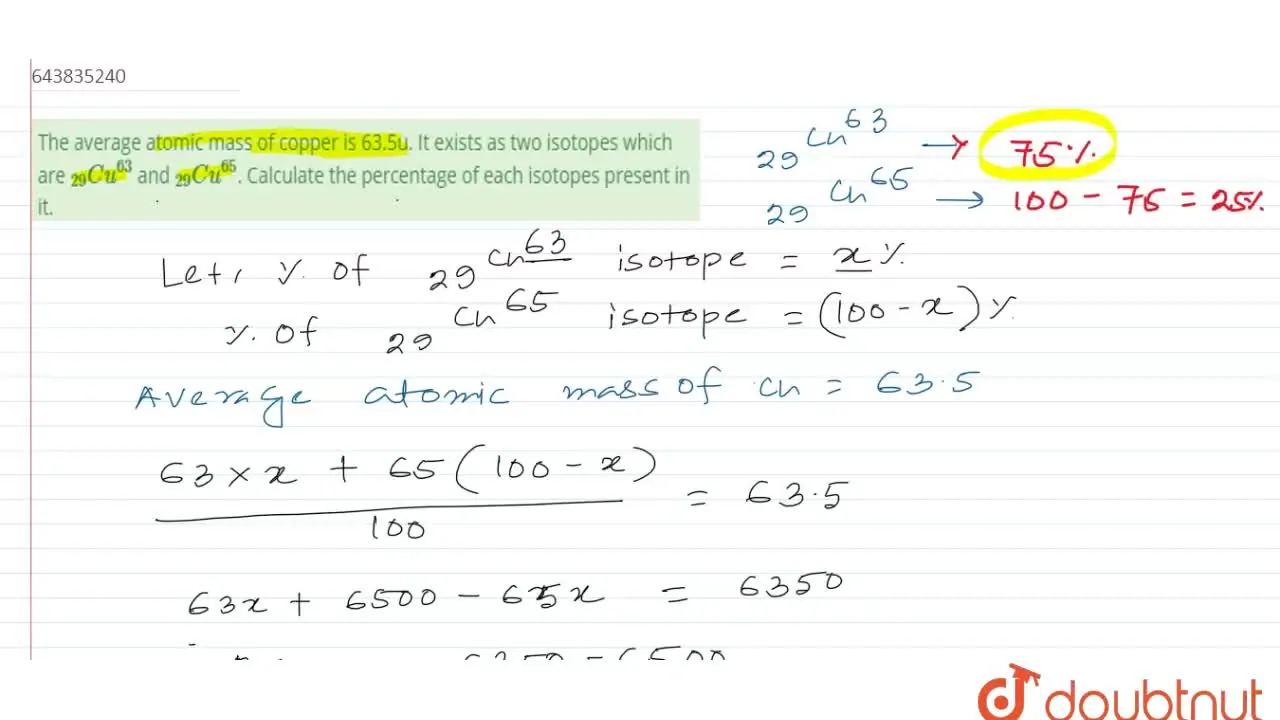 643835240
The average atomic mass of copper is 63.5u. It exists as two isotopes which
are ₂₉Cu⁶³ and ₂₉Cu⁶⁵. Calculate the percentage of each isotopes present in
it.
₂₉Cu⁶³ → 75%
₂₉Cu⁶⁵ → 100 - 75 = 25%
Let, % of ₂₉Cu⁶³ isotope = x%
% of ₂₉Cu⁶⁵ isotope = (100 - x)%
Average atomic mass of Cu = 63.5
63 × x + 65 (100 - x)
100
= 63.5
63x + 6500 - 65x = 6350
doubtnut